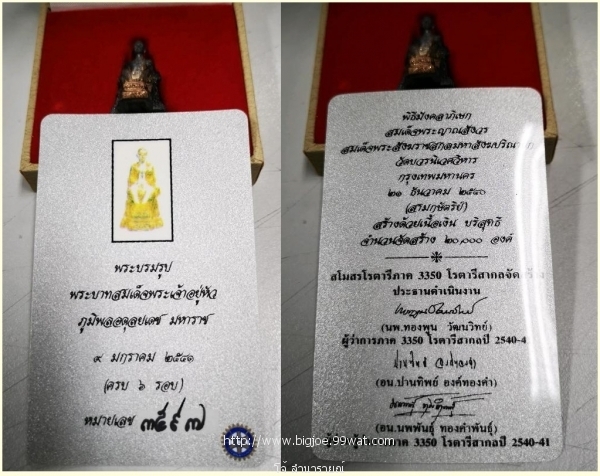 พระบรมรูป
พระบาทสมเด็จพระเจ้าอยู่หัว
ภูมิพลอดุลยเดช มหาราช
๙ มกราคม ๒๕๔๑
(ครบ ๖ รอบ)
หมายเลข
พิธีมังคลาภิเษก
สมเด็จพระญาณสังวร
สมเด็จพระสังฆราชสกลมหาสังฆปริณายก
วัดบวรนิเวศวิหาร
กรุงเทพมหานคร
๒๑ ธันวาคม ๒๕๔๐
(เสาร์
สร้างด้วยเนื้อเงิน บริสุทธิ์
จำนวนจัดสร้าง ๒๐,๐๐๐ องค์
สโมสรโรตารีภาค 3350 โรตารีสากลจัดสร้าง
ประธานดำเนินงาน
(นพ.ทองพูน วัฒนวิทย์)
ผู้ว่าการภาค 3350 โรตารีสากลปี 2540-4
(อน.ปานทิพย์ องค์ทองคำ)
(อน.นพพันธุ์ ทองคำพันธุ์)
ภาค 3350 โรตารีสากลปี 2540-41
http://www.bigjoe.99wat.com
โจ้ สามารายณ์